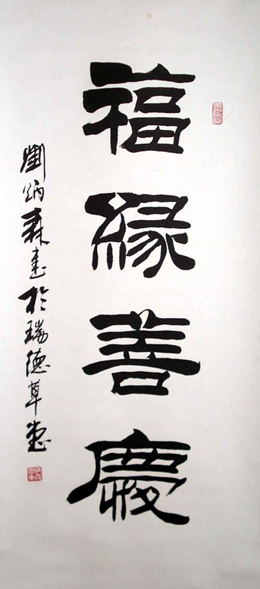 福緣善慶
劉炳森書於瑞德草堂